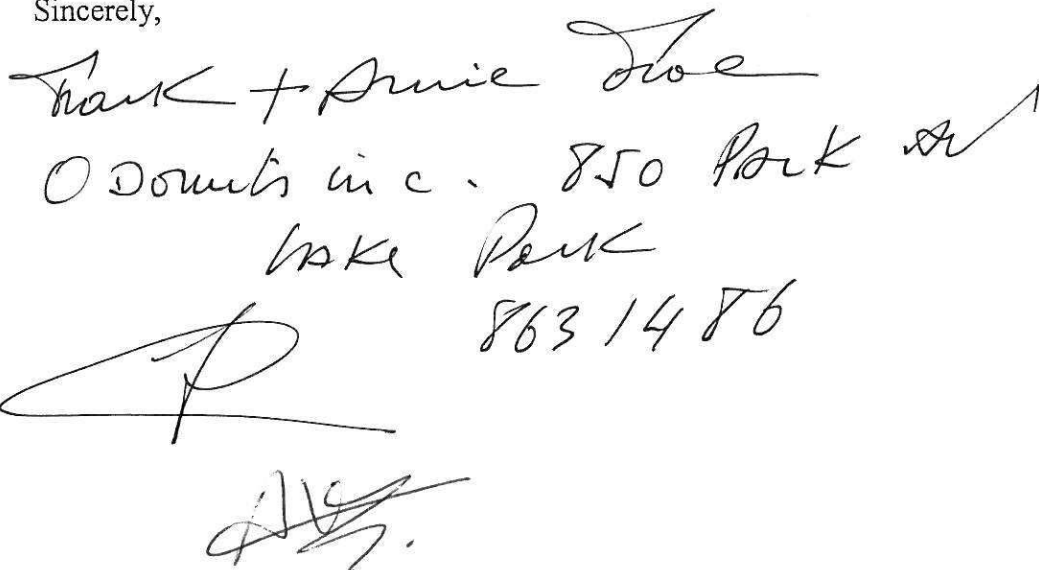 Sincerely,
Frank + Annie
O Donuts inc. 850 Park Av
Lake Park
863 1486